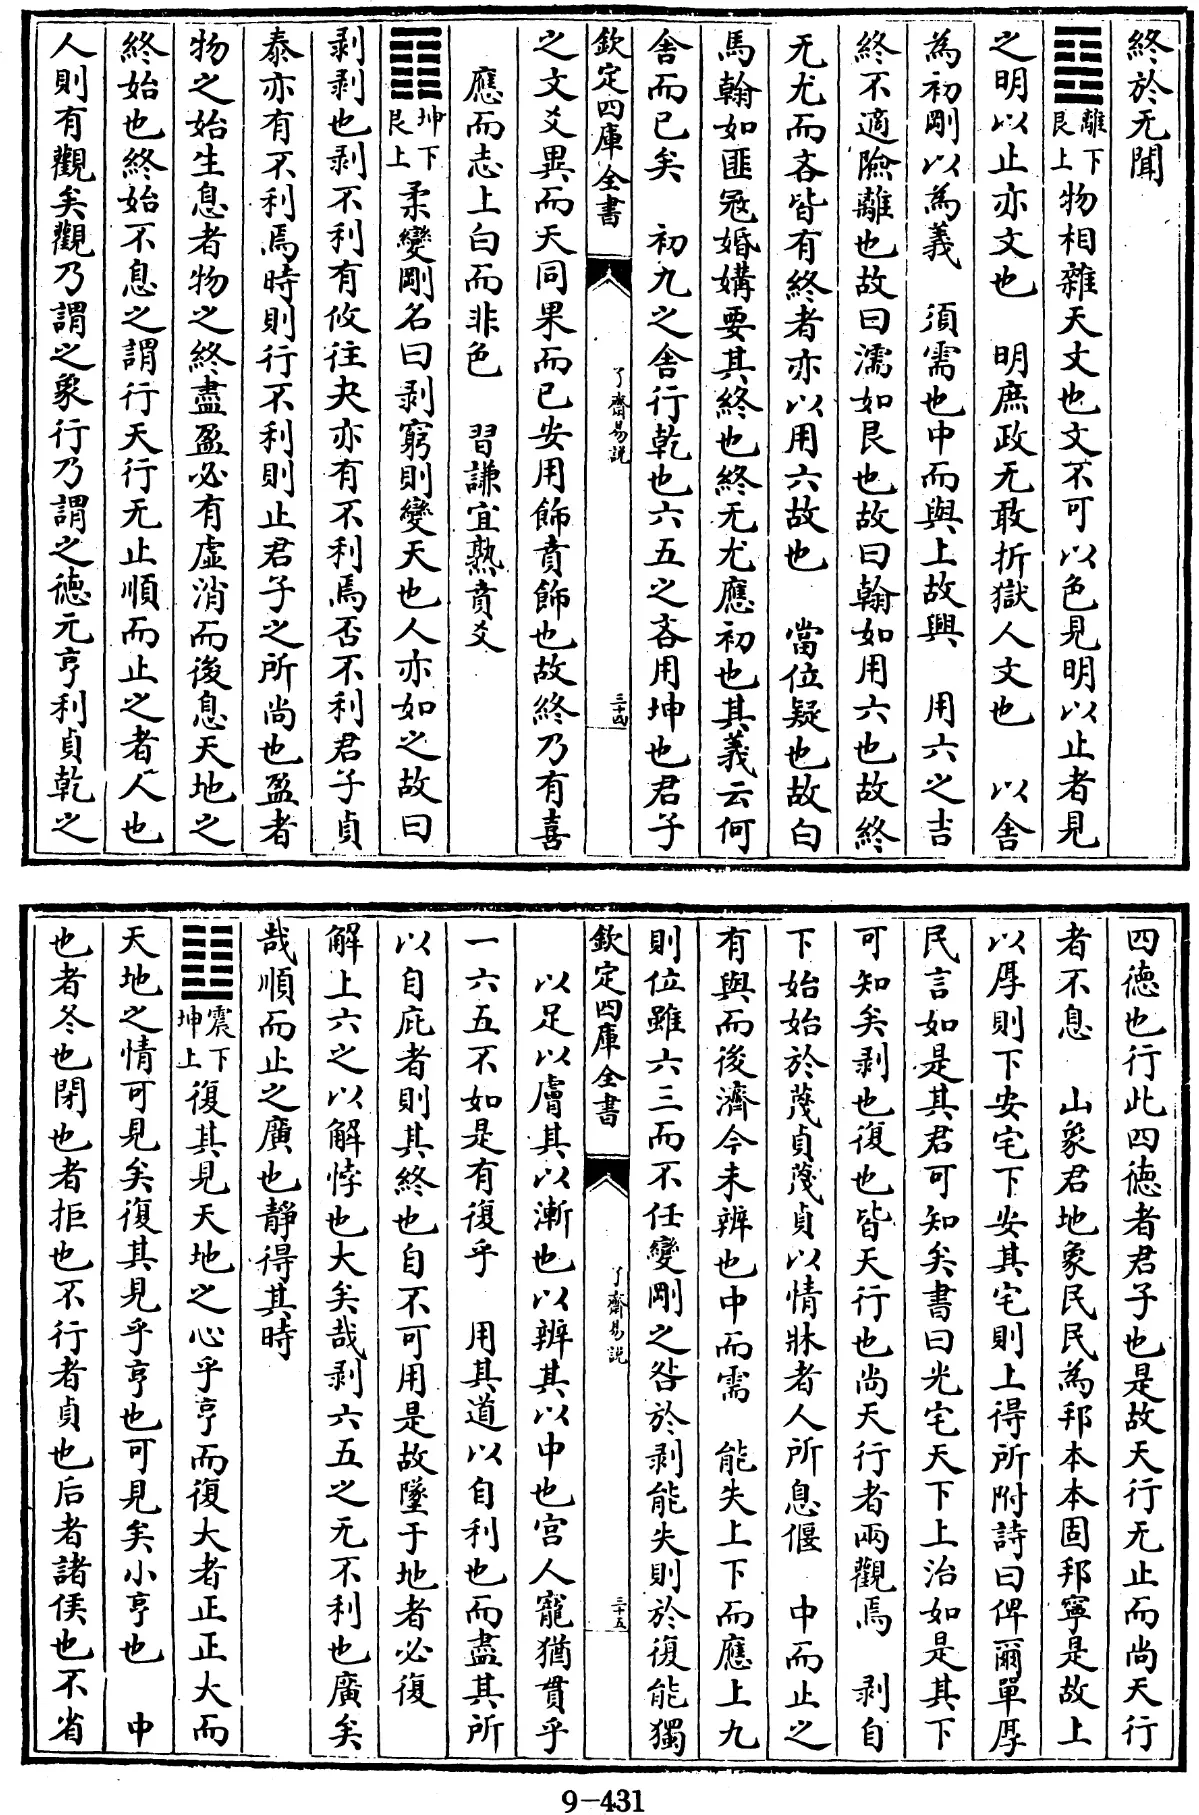 終於无聞
離下艮上物相雜天文也文不可以色見明以止者見
之明以止亦文也　明庶政无敢折獄人文也　以舍
為初剛以為義　須需也中而與上故興　用六之吉
終不適險離也故曰濡如艮也故曰翰如用六也故終
无尤而吝皆有終者亦以用六故也　當位疑也故白
馬翰如匪冦婚媾要其終也終无尤應初也其義云何
舍而已矣　初九之舍行乾也六五之吝用坤也君子
欽定四庫全書　了齋易說　三十四
之文爻異而天同果而已安用飾賁飾也故終乃有喜
應而志上白而非色　習謙宜熟賁爻
坤下艮上柔變剛名曰剥窮則變天也人亦如之故曰
剥剥也剥不利有攸往夬亦有不利焉否不利君子貞
泰亦有不利焉時則行不利則止君子之所尚也盈者
物之始生息者物之終盡盈必有虛消而後息天地之
終始也終始不息之謂行天行无止順而止之者人也
人則有觀矣觀乃謂之象行乃謂之德元亨利貞乾之
四德也行此四德者君子也是故天行无止而尚天行
者不息　山象君地象民民為邦本本固邦寧是故上
以厚則下安宅下安其宅則上得所附詩曰俾爾單厚
民言如是其君可知矣書曰光宅天下上治如是其下
可知矣剥也復也皆天行也尚天行者兩觀焉　剥自
下始始於蔑貞蔑貞以情牀者人所息偃　中而止之
有與而後濟今未辨也中而需　能失上下而應上九
則位雖六三而不任變剛之咎於剥能失則於復能獨
欽定四庫全書　了齋易說　三十五
以足以膚其以漸也以辨其以中也宫人寵猶貫乎
一六五不如是有復乎　用其道以自利也而盡其所
以自庇者則其終也自不可用是故墜于地者必復
解上六之以解悖也大矣哉剥六五之无不利也廣矣
哉順而止之廣也靜得其時
震下坤上復其見天地之心乎亨而復大者正正大而
天地之情可見矣復其見乎亨也可見矣小亨也　中
也者冬也閉也者拒也不行者貞也后者諸侯也不省
9-431